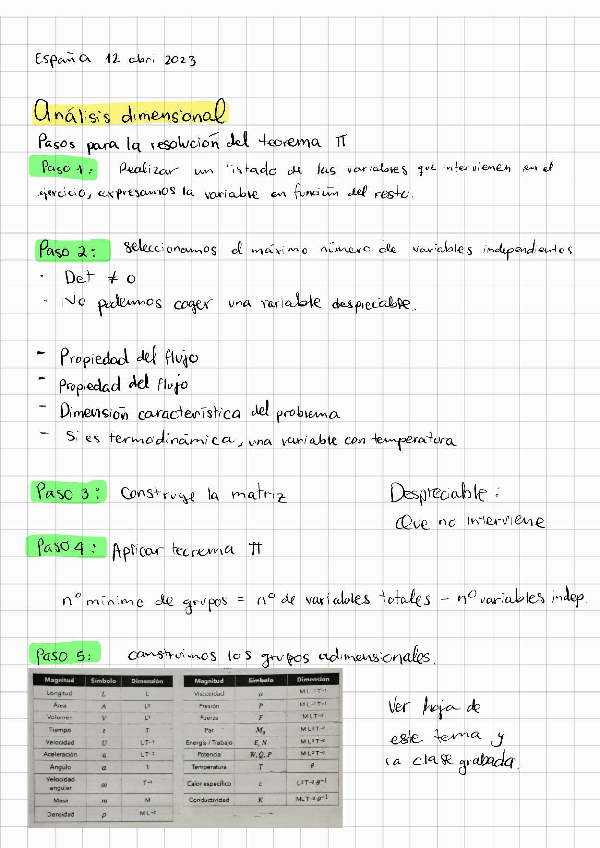 España 12 abri 2023
Análisis dimensional
Pasos para la resolución del teorema π
Paso 1: Realizar un listado de las variables que intervienen en el
ejercicio, expresamos la variable en función del resto.
Paso 2: seleccionamos el máximo número de variables independientes
· Det ≠ 0
· No podemos coger una variable despreciable.
- Propiedad del flujo
- Propiedad del flujo
- Dimensión característica del problema
- Si es termodinámica, una variable con temperatura
Paso 3: Construye la matriz
Despreciable:
Que no interviene
Paso 4: Aplicar teorema π
nº mínimo de grupos = nº de variables totales - nº variables indep.
Paso 5: construimos los grupos adimensionales.
Magnitud Símbolo Dimensión
Longitud L L
Área A L²
Volumen V L³
Tiempo t T
Velocidad U LT⁻¹
Aceleración a LT⁻²
Ángulo α 1
Velocidad angular ω T⁻¹
Masa m M
Densidad ρ ML⁻³
Magnitud Símbolo Dimensión
Viscosidad μ ML⁻¹T⁻¹
Presión P ML⁻¹T⁻²
Fuerza F MLT⁻²
Par ML²T⁻²
Energía / Trabajo E, N ML²T⁻²
Potencia W, Q, P ML²T⁻³
Temperatura T θ
Calor específico c L²T⁻²θ⁻¹
Conductividad K MLT⁻³θ⁻¹
Ver hoja de
este tema y
la clase grabada.